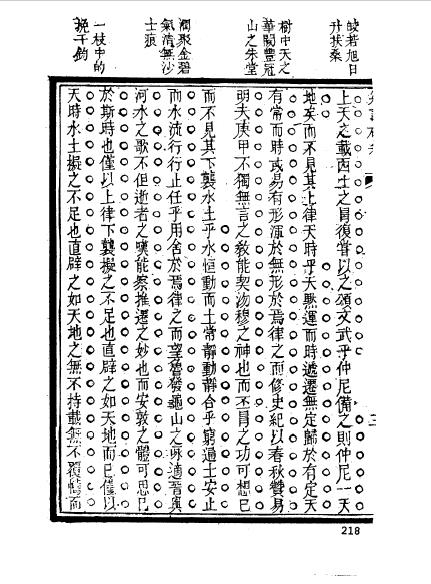 皎若旭日
升扶桑
樹中天之
華闕豐冠
山之朱堂
澗聚金碧
氣清無沙
士痕
一枝中的
挽千鈞
上天之載西土之冐復嘗以之頌文武乎仲尼備之則仲尼一天
地矣而不見其上律天時乎天黙運而時遞遷無定歸於有定天
有常而時或易有形渾於無形於焉律之而修史紀以春秋贊易
明夫庚甲不獨無言之敎能契沕穆之神也而丕冐之功可想已
而不見其下襲水土乎水恒動而土常靜動靜合乎窮過土安止
而水流行行止任乎用舍於焉律之而望魯發龜山之咏適晉興
河水之歌不但逝者之嘆能察推遷之妙也而安敦之體可思已
於斯時也僅以上律下襲擬之不足也直辟之如天地而已僅以
天時水土擬之不足也直辟之如天地之無不持載無不覆幬而
218